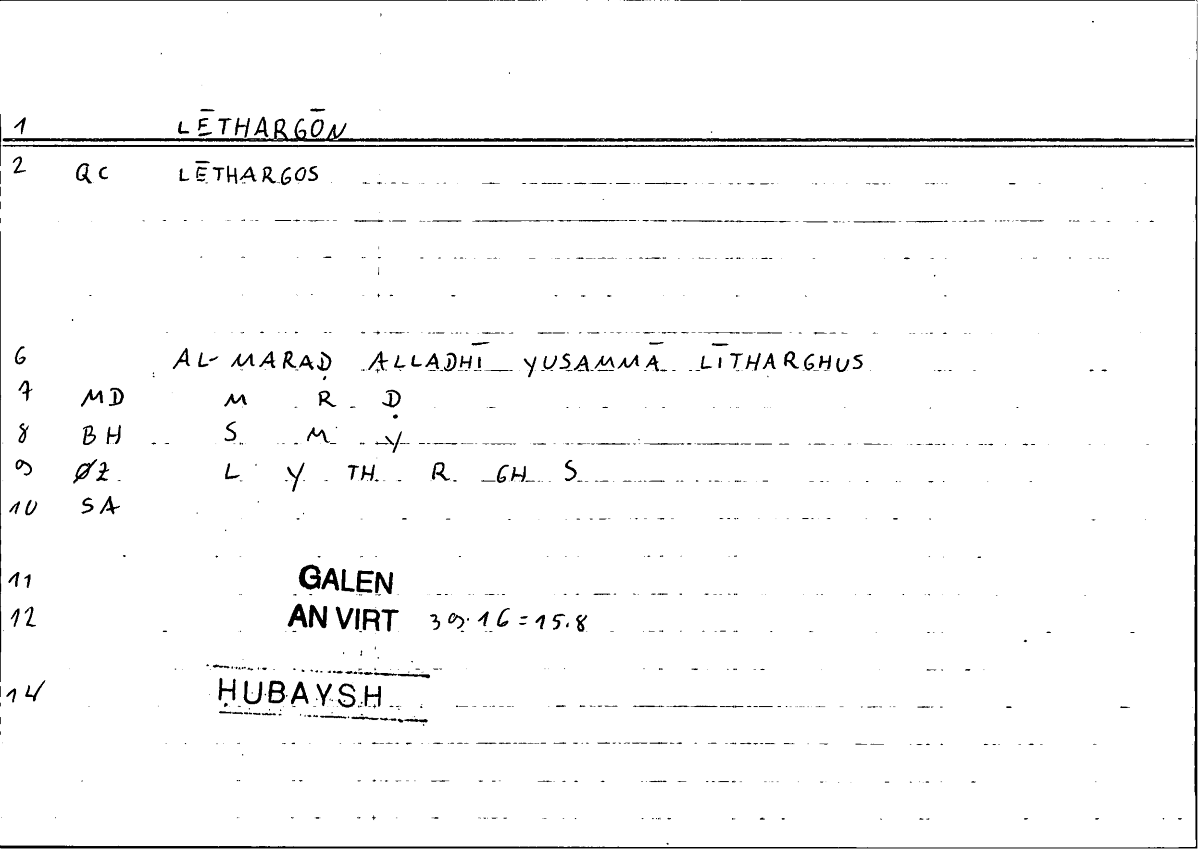 1 LĒTHARGŌN
2 QC LĒTHARGOS
6 AL-MARAḌ ALLADHĪ YUSAMMĀ LĪTHARGHUS
7 MD M R Ḍ
8 BH S M Y
9 ØZ L Y TH R GH S
10 SA
11 GALEN
12 AN VIRT 39.16=15.8
14 ḤUBAYSH